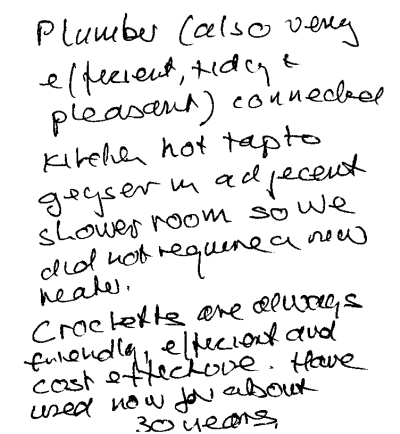 Plumber (also very
efficient, tidy &
pleasant) connected
kitchen hot tap to
geyser in adjecent
shower room so we
did not require a new
heater.
Crocketts are always
friendly, efficient and
cost effective. Have
used now for about
30 years.